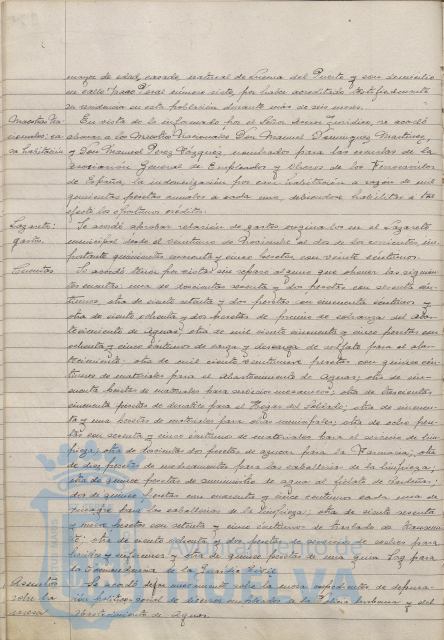 mayor de edad, casado, natural de Lucena del Puerto y con domicilio
en calle número siete, por haber acreditado
su residencia en esta población durante más de seis meses.
Maestros Nacionales: casa habitación
En vista de lo informado por el Señor Asesor Jurídico, se acordó
abonar a los Maestros Nacionales Don Manuel Dominguez Martinez,
y Don Manuel Perez Vázquez, nombrados para las escuelas de la
Asociación General de Empleados y Obreros de los Ferrocarriles
de España, la indemnización por casa habitación a razón de mil
quinientas pesetas anuales a cada uno, debiéndose habilitar a tal
efecto los oportunos créditos.
Lazareto: gastos.
Se acordó aprobar relación de gastos originados en el Lazareto
municipal desde el veintiuno de Noviembre al dos de los corrientes im-
portante quinientas cincuenta y cinco pesetas con veinte céntimos.
Cuentas.
Se acordó tener por vistas sin reparo alguno que oponer las siguien-
tes cuentas: una de doscientas sesenta y dos pesetas con sesenta cén-
timos, otra de ciento setenta y dos pesetas con cincuenta céntimos y
otra de ciento ochenta y dos pesetas de premio de cobranza del abas-
tecimiento de Aguas; otra de mil ciento cincuenta y cinco pesetas con
ochenta y cinco céntimos de carga y descarga de sulfato para el abas-
tecimiento; otra de mil ciento pesetas con quince cén-
timos de materiales para el abastecimiento de Aguas; otra de cin-
cuenta pesetas de materiales para servicios mecánicos; otra de trescientas
cincuenta pesetas de donativo para el Hogar del Soldado; otra de
ta y una pesetas de materiales para obras municipales; otra de ocho pese-
tas con sesenta y cinco céntimos de materiales para el servicio de Lim-
pieza; otra de doscientas dos pesetas de azúcar para la Farmacia; otra
de diez pesetas de medicamentos para las caballerías de la Limpieza;
otra de quince pesetas de suministro de agua al fielato de
dos de quince pesetas con cuarenta y cinco céntimos cada una de
para las caballerías de la Limpieza; otra de ciento sesenta
y nueve pesetas con setenta y cinco céntimos de traslado de
otra de ciento ochenta y dos pesetas de servicios de coches para
heridos y enfermos y otra de quince pesetas de
Comandancia de la Guardia Civil
Asuntos sobre la mesa
Se acordó dejar nuevamente sobre la mesa expedientes de depura-
ción político social de diversos empleados de la Policía Urbana y del
Abastecimiento de Aguas.
AYUNTAMIENTO DE
HUELVA